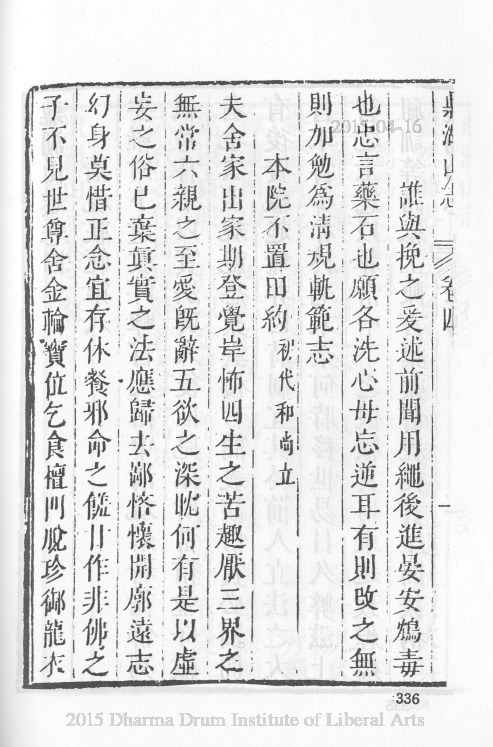 鼎湖山志 卷四 一
誰與挽之爰述前聞用繩後進晏安鴆毒
也忠言藥石也願各洗心毋忘逆耳有則改之無
則加勉為清規軌範志
本院不置田約 初代和尚立
夫舍家出家期登覺岸怖四生之苦趣厭三界之
無常六親之至愛既辭五欲之深眈何有是以虛
妄之俗已棄真實之法應歸去鄙悋懷開廓遠志
幻身莫惜正念宜存休餐邪命之饌甘作非佛之
子不見世尊舍金輪寶位乞食檀門脫珍御龍衣
336
2015-04-16
2015 Dharma Drum Institute of Liberal Arts